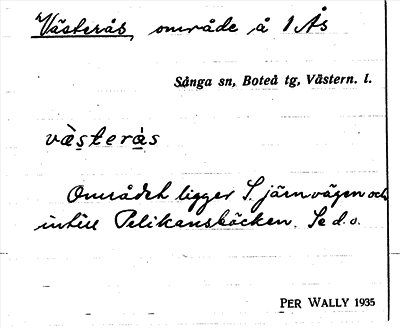 Västerås, område å 1 Ås
Sånga sn, Boteå tg, Västern. l.
vàsteràs
Området ligger S. järnvägen och
intill Pelikansbäcken. Se d.o.
PER WALLY 1935